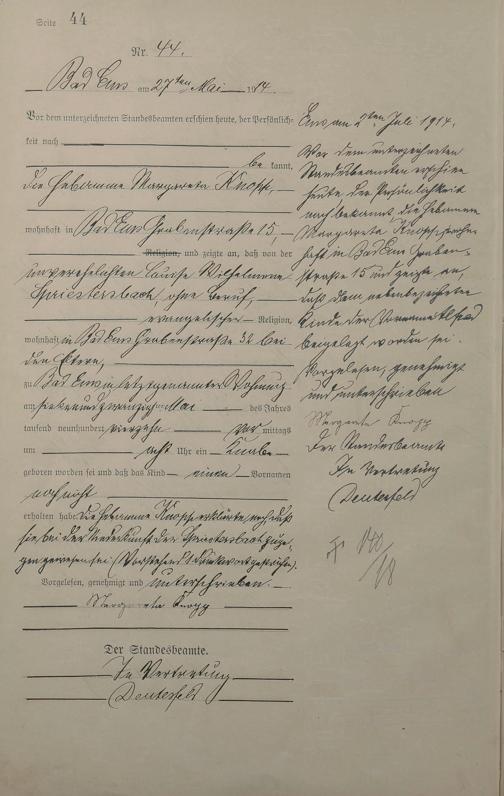 Seite 44
Nr. 44.
Bad Ems am 27ten Mai 1914
Vor dem unterzeichneten Standesbeamten erschien heute, der Persönlich-
keit nach
bekannt,
die Hebamme Margareta Knopp,
wohnhaft in Bad Ems Grabenstraße 15,
Religion, und zeigte an, daß von der
unverehelichten Louise Wilhelmine
Spriestersbach, ohne Beruf,
evangelischer Religion,
wohnhaft in Bad Ems Grabenstraße 32 bei
den Eltern,
zu Bad Ems in letztgenannter Wohnung
am siebenundzwanzigsten Mai des Jahres
tausend neunhundert vierzehn vormittags
um acht Uhr ein Knabe
geboren worden sei und daß das Kind einen Vornamen
noch nicht
erhalten habe. Die Hebamme Knopp erklärte, noch daß
sie bei der Niederkunft der Spriestersbach zuge-
gen gewesen sei (Vorstehend 1 Druckwort gestrichen).
Vorgelesen, genehmigt und unterschrieben.
Margareta Knopp
Der Standesbeamte.
In Vertretung
Ems am 2ten Juli 1914.
Vor dem unterzeichneten
Standesbeamten erschien
heute der Persönlichkeit
nach bekannt, die Hebamme
Margareta Knopp, wohn-
haft in Bad Ems Graben-
straße 15 und zeigte an,
daß dem nebenbezeichneten
Kinde der Vorname
beigelegt worden sei.
Vorgelesen, genehmigt
und unterschrieben
Margareta Knopp
Der Standesbeamte
In Vertretung